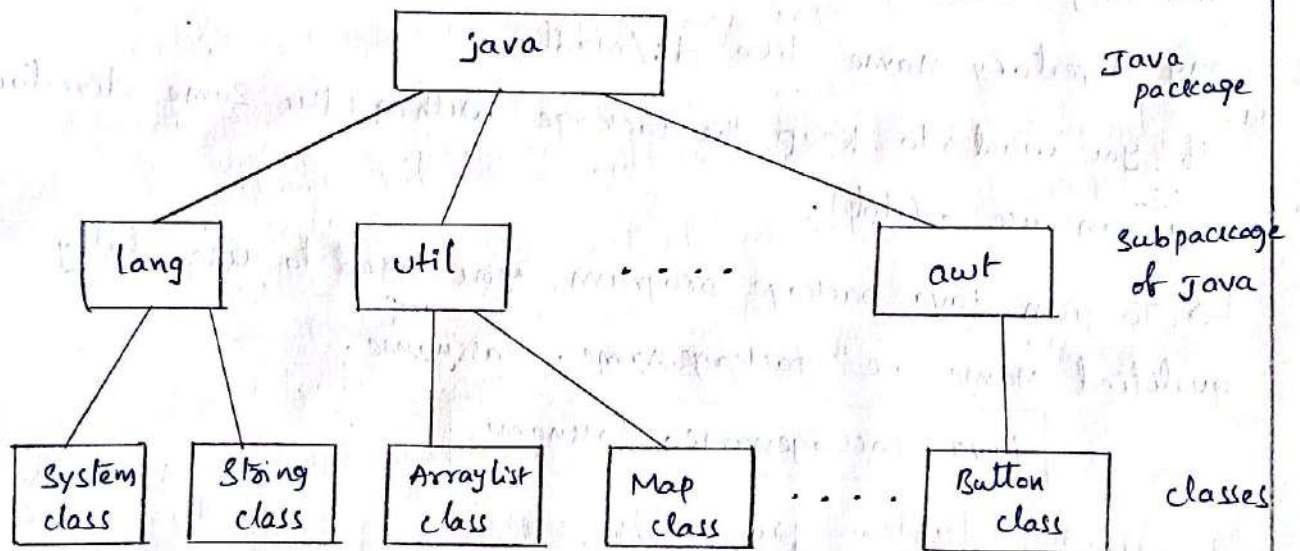 java
Java
package
lang
util
. . . .
awt
Subpackage
of Java
System
class
String
class
Arraylist
class
Map
class
. . . .
Button
class
classes